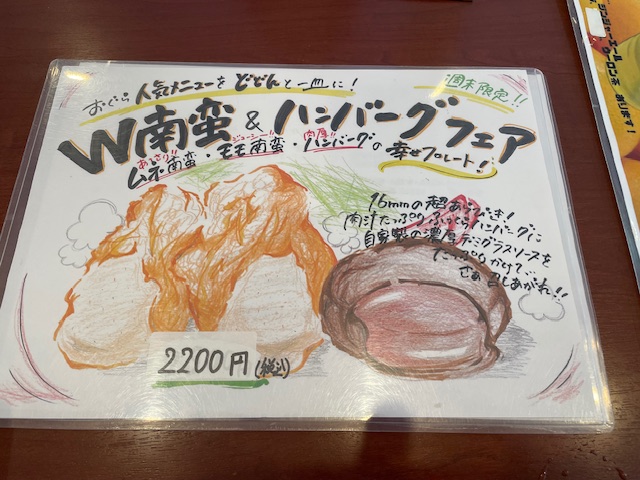 おぐら 人気メニューを どどんと一皿に!
週末限定!!
W南蛮&ハンバーグフェア
あっさり!! ジューシー!! 肉厚!!
ムネ南蛮・モモ南蛮・ハンバーグの幸せプレート!
16mmの超あらびき!
肉汁たっぷりふっくらハンバーグに
自家製の濃厚デミグラスソースを
たっぷりかけて…
さぁ召しあがれ!!
2200円(税込)